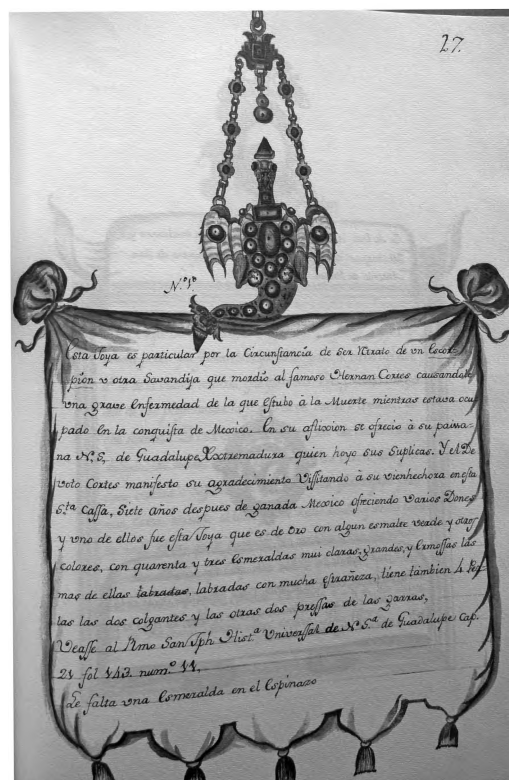 27.
N.º 1º
Esta Joya es particular por la Circunstancia de ser Retrato de vn Escor-
pion v otra Savandija que mordio al famoso Hernan Cortes causandole
vna grave Enfermedad de la que Estubo à la Muerte mientras estava ocu
pado en la conquista de Mexico. En su aflixion se ofrecio à su paissa-
na N.S, de Guadalupe Xxtremadura quien hoyo sus Suplicas. Y el De
voto Cortes manifesto su agradecimiento Vissitando à su vienhechora en esta
S.ta Cassa, Siete años despues de ganada Mexico ofreciendo varios Dones
y vno de ellos fue esta Joya que es de Oro con algun esmalte verde y otros
colores, con quarenta y tres Esmeraldas mui claras, grandes, y Ermossas las
mas de ellas labradas, labradas con mucha estrañeza, tiene tambien 4 Per
las las dos colgantes y las otras dos pressas de las garras,
Veasse al Rmo San Jph Hist.ª Universsal de N S.ª de Guadalupe Cap.
21 fol 143. num.º 11,
Le falta vna Esmeralda en el Espinazo